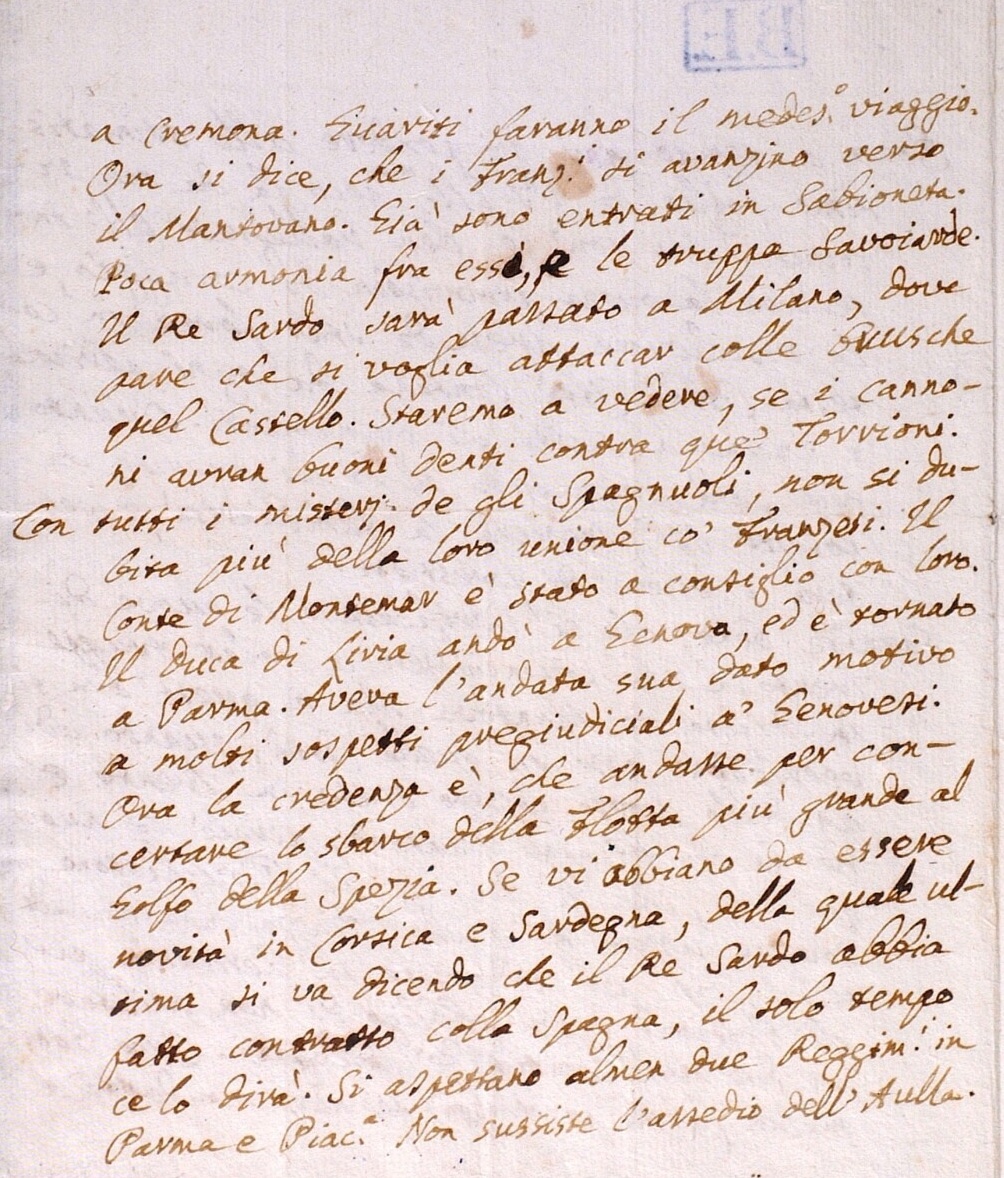 a Cremona. Guariti faranno il medes.º viaggio.
Ora si dice, che i Franz.i si avanzino verso
il Mantovano. Già sono entrati in Sabioneta.
Poca armonia fra essi, e le truppe Savoiarde.
Il Re Sardo sarà passato a Milano, dove
pare che si voglia attaccar colle brusche
quel Castello. Staremo a vedere, se i canno-
ni avran buoni denti contra que' Torrioni.
Con tutti i misterj de gli Spagnuoli, non si du-
bita più della loro unione co' Franzesi. Il
Conte di Montemar è stato a consiglio con loro.
Il Duca di Liria andò a Genova, ed è tornato
a Parma. Aveva l'andata sua dato motivo
a molti sospetti pregiudiciali a' Genovesi.
Ora la credenza è, che andasse per con-
certare lo sbarco della Flotta più grande al
Golfo della Spezia. Se vi abbiano da essere
novità in Corsica e Sardegna, della quale ul-
tima si va dicendo che il Re Sardo abbia
fatto contratto colla Spagna, il solo tempo
ce lo dirà. Si aspettano almen due Reggim.i in
Parma e Piac.a Non sussiste l'assedio dell'Aulla.